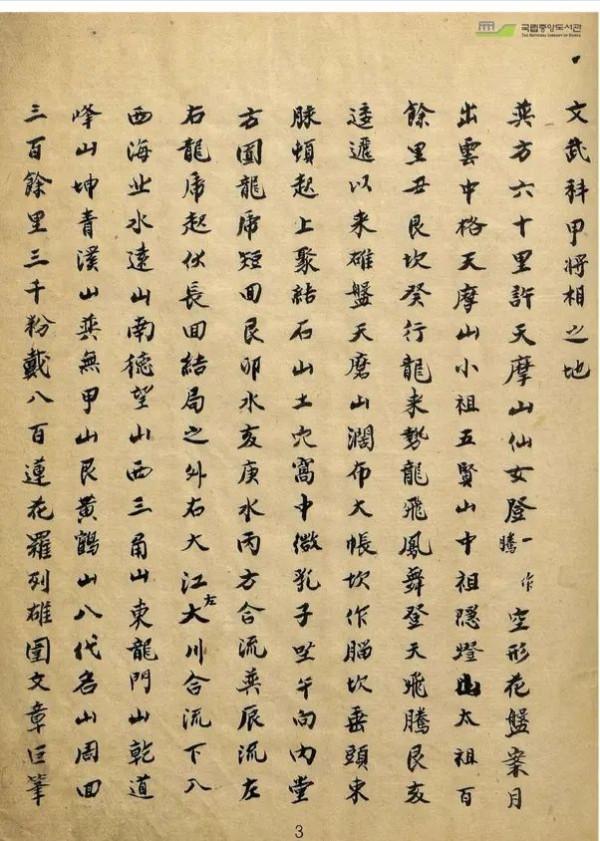 국립중앙도서관
THE NATIONAL LIBRARY OF KOREA
文武科甲將相之地
巽方六十里許天摩山仙女登騰一作空形花盤案月
出雲中格天摩山小祖五賢山中祖隱燈山太祖百
餘里丑艮坎癸行龍来勢龍飛鳳舞登天飛騰艮亥
逶遞以来雄盤天磨山濶布大帳坎作腦坎垂頭東
脉頓起上聚結石山土穴窩中微乳子坐午向內堂
方圓龍虎短回艮卯水亥庚水丙方合流巽辰流左
右龍虎起伏長回結局之外右大江左大川合流下入
西海此水遠山南德望山西三角山東龍門山乾道
峰山坤青溪山巽無甲山艮黃鶴山八代名山周回
三百餘里三千粉戴八百蓮花羅列雄圍文章巨筆
3